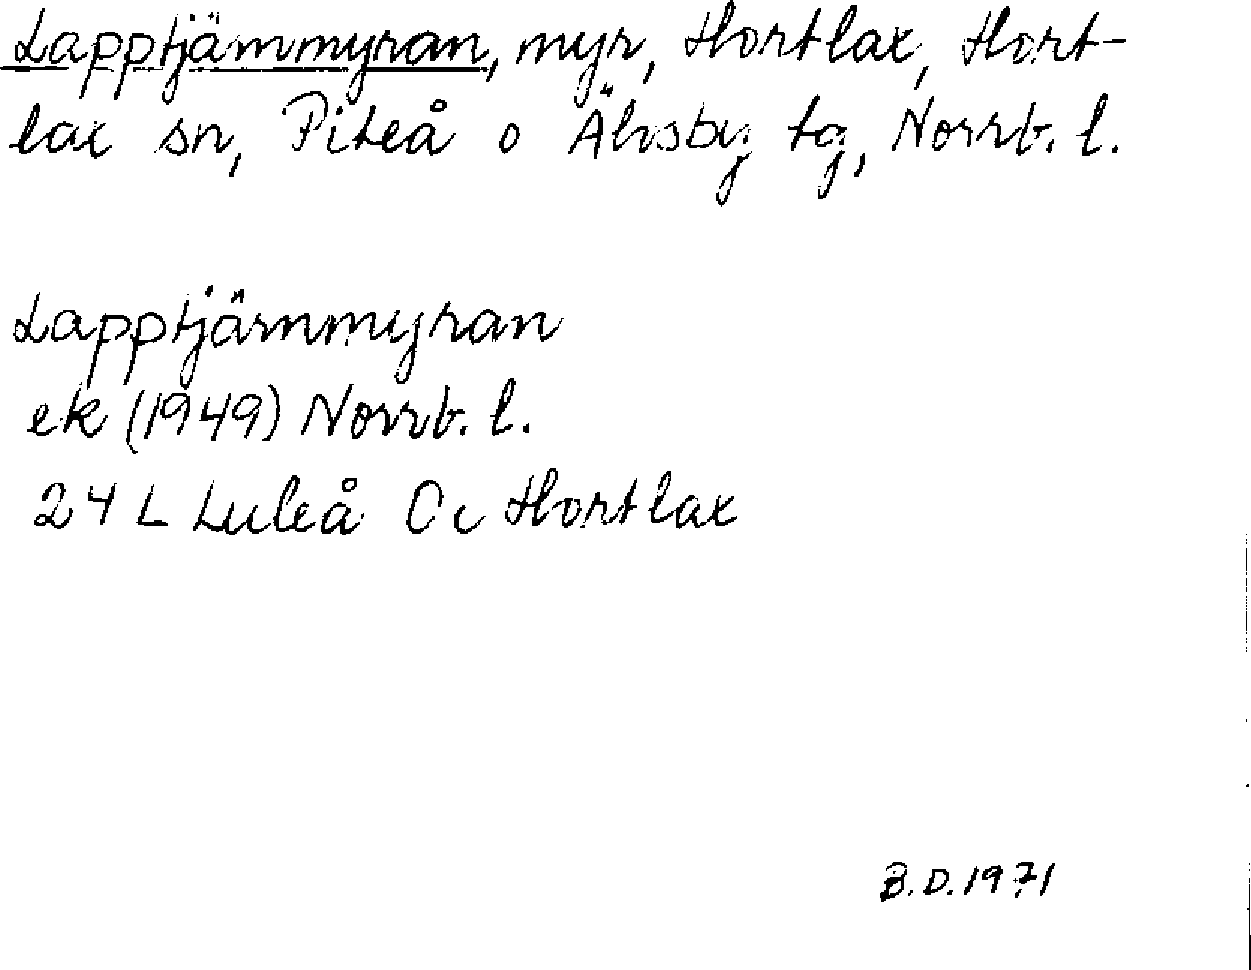 Lapptjärnmyran, myr, Hortlax, Hort-
lax sn, Piteå o Älvsby tg, Norrb. l.
Lapptjärnmyran
ek (1949) Norrb. l.
24 L Luleå 0c Hortlax
B.D. 1971